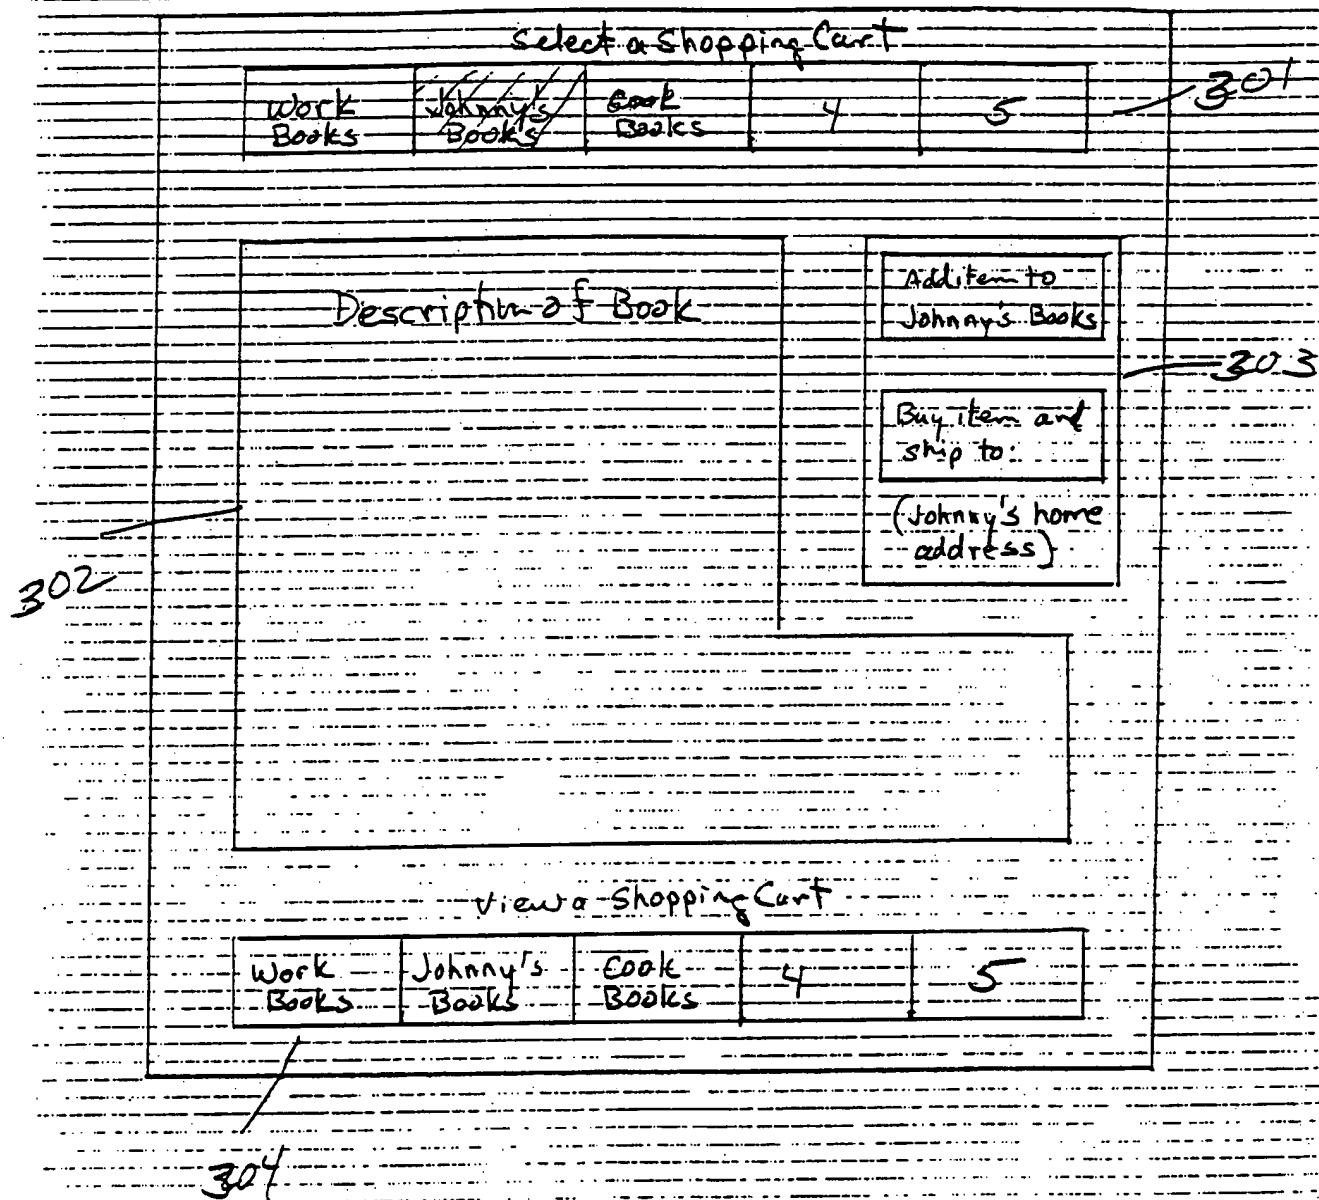 Select a Shopping Cart
301
Work
Books
Johnny's
Books
Cook
Books
4
5
Description of Book
Add item to
Johnny's Books
303
Buy item and
ship to:
(Johnny's home
address)
302
View a Shopping Cart
Work
Books
Johnny's
Books
Cook
Books
4
5
304